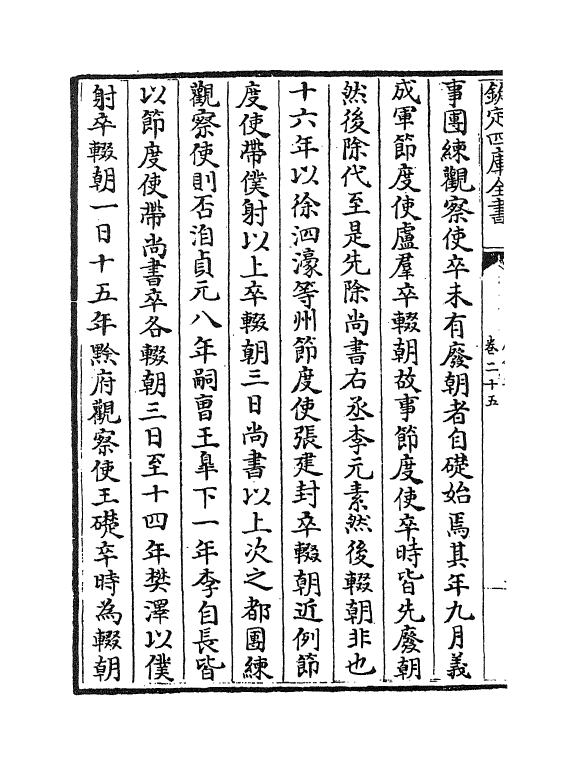 欽定四庫全書
卷二十五
事團練觀察使卒未有廢朝者自礎始焉其年九月義
成軍節度使盧羣卒輟朝故事節度使卒時皆先廢朝
然後除代至是先除尚書右丞李元素然後輟朝非也
十六年以徐泗濠等州節度使張建封卒輟朝近例節
度使帶僕射以上卒輟朝三日尚書以上次之都團練
觀察使則否洎貞元八年嗣曹王臯下一年李自長皆
以節度使帶尚書卒各輟朝三日至十四年樊澤以僕
射卒輟朝一日十五年黔府觀察使王礎卒時為輟朝